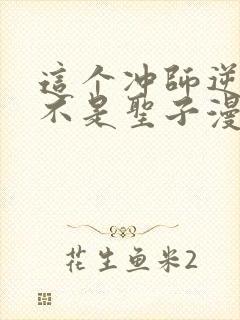 這个冲師逆
不是聖子漫
花生鱼米2